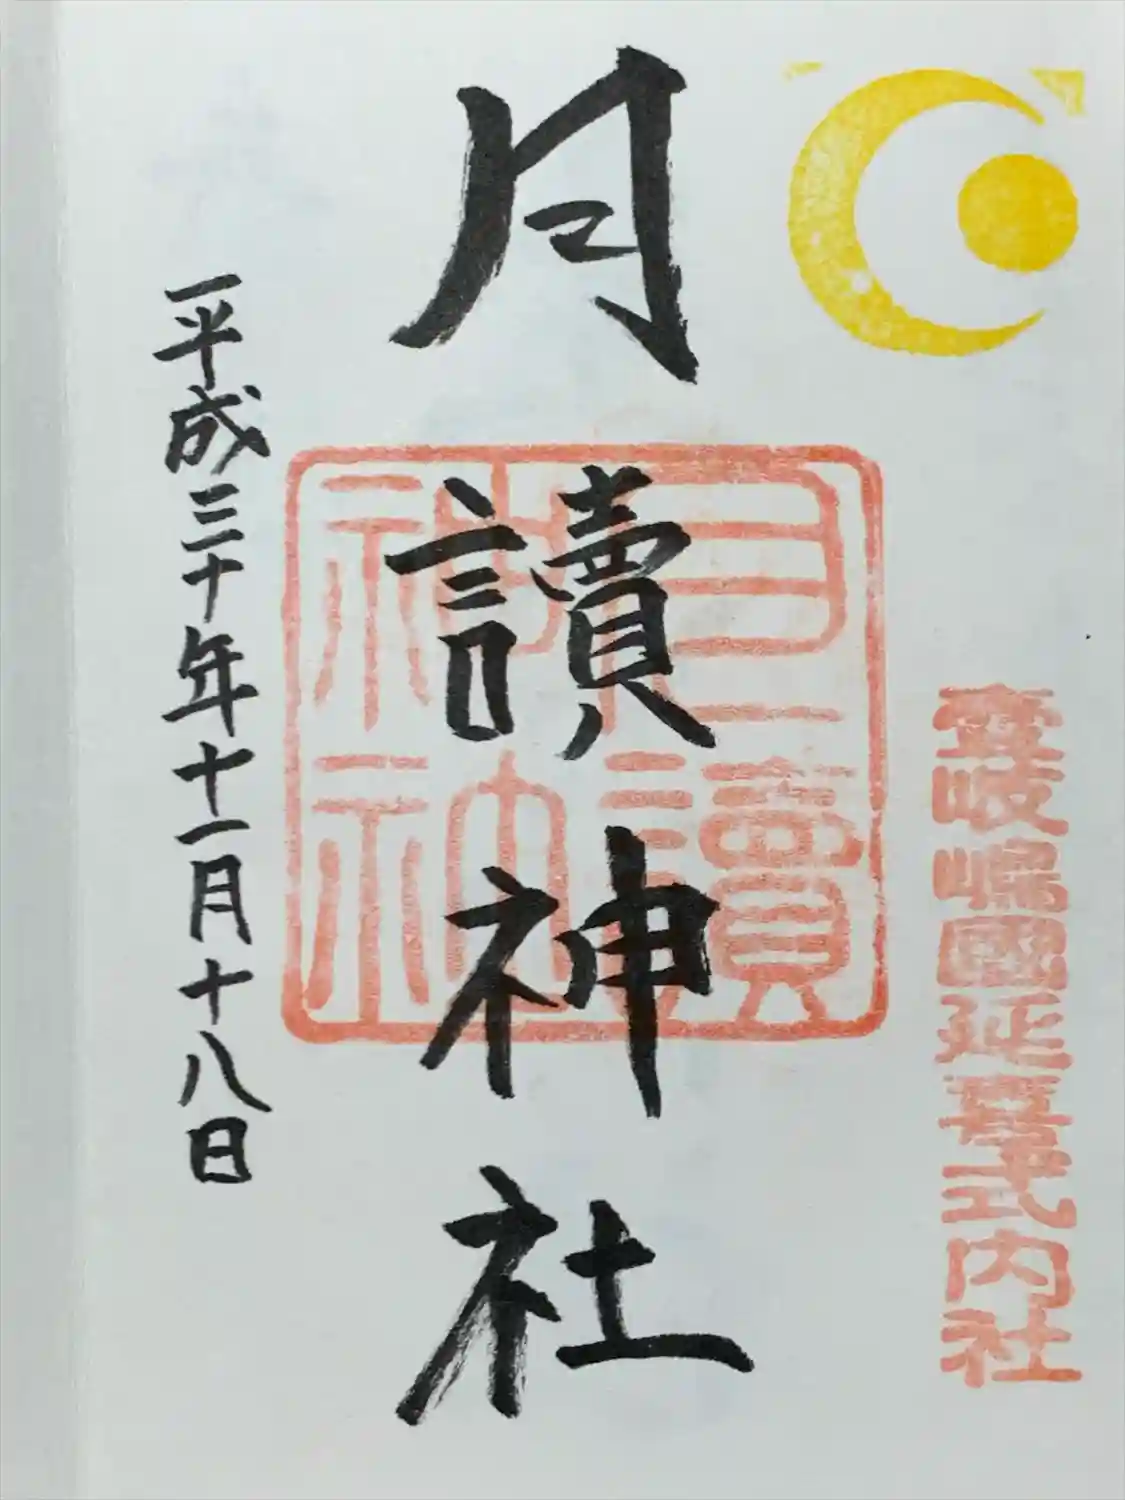 壹岐嶋國延喜式内社
月讀神社
月讀神社
平成三十年十一月十八日